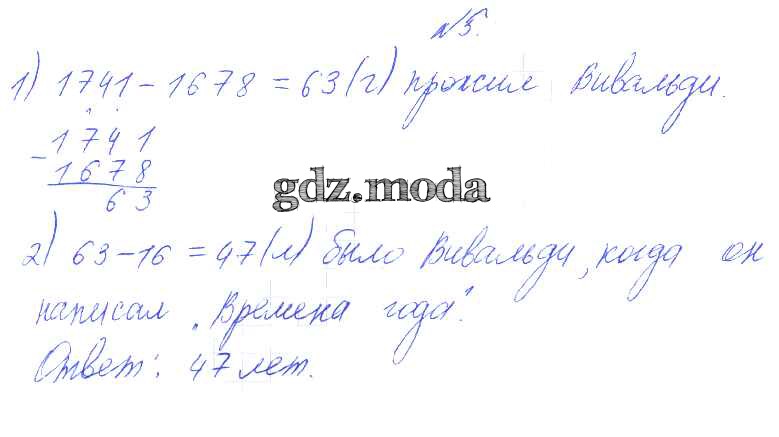 №5.
1) 1741 - 1678 = 63 (г) прожил Вивальди.
- 1741
1678
63
gdz.moda
2) 63 - 16 = 47 (л) было Вивальди, когда он
написал „Времена года".
Ответ: 47 лет.